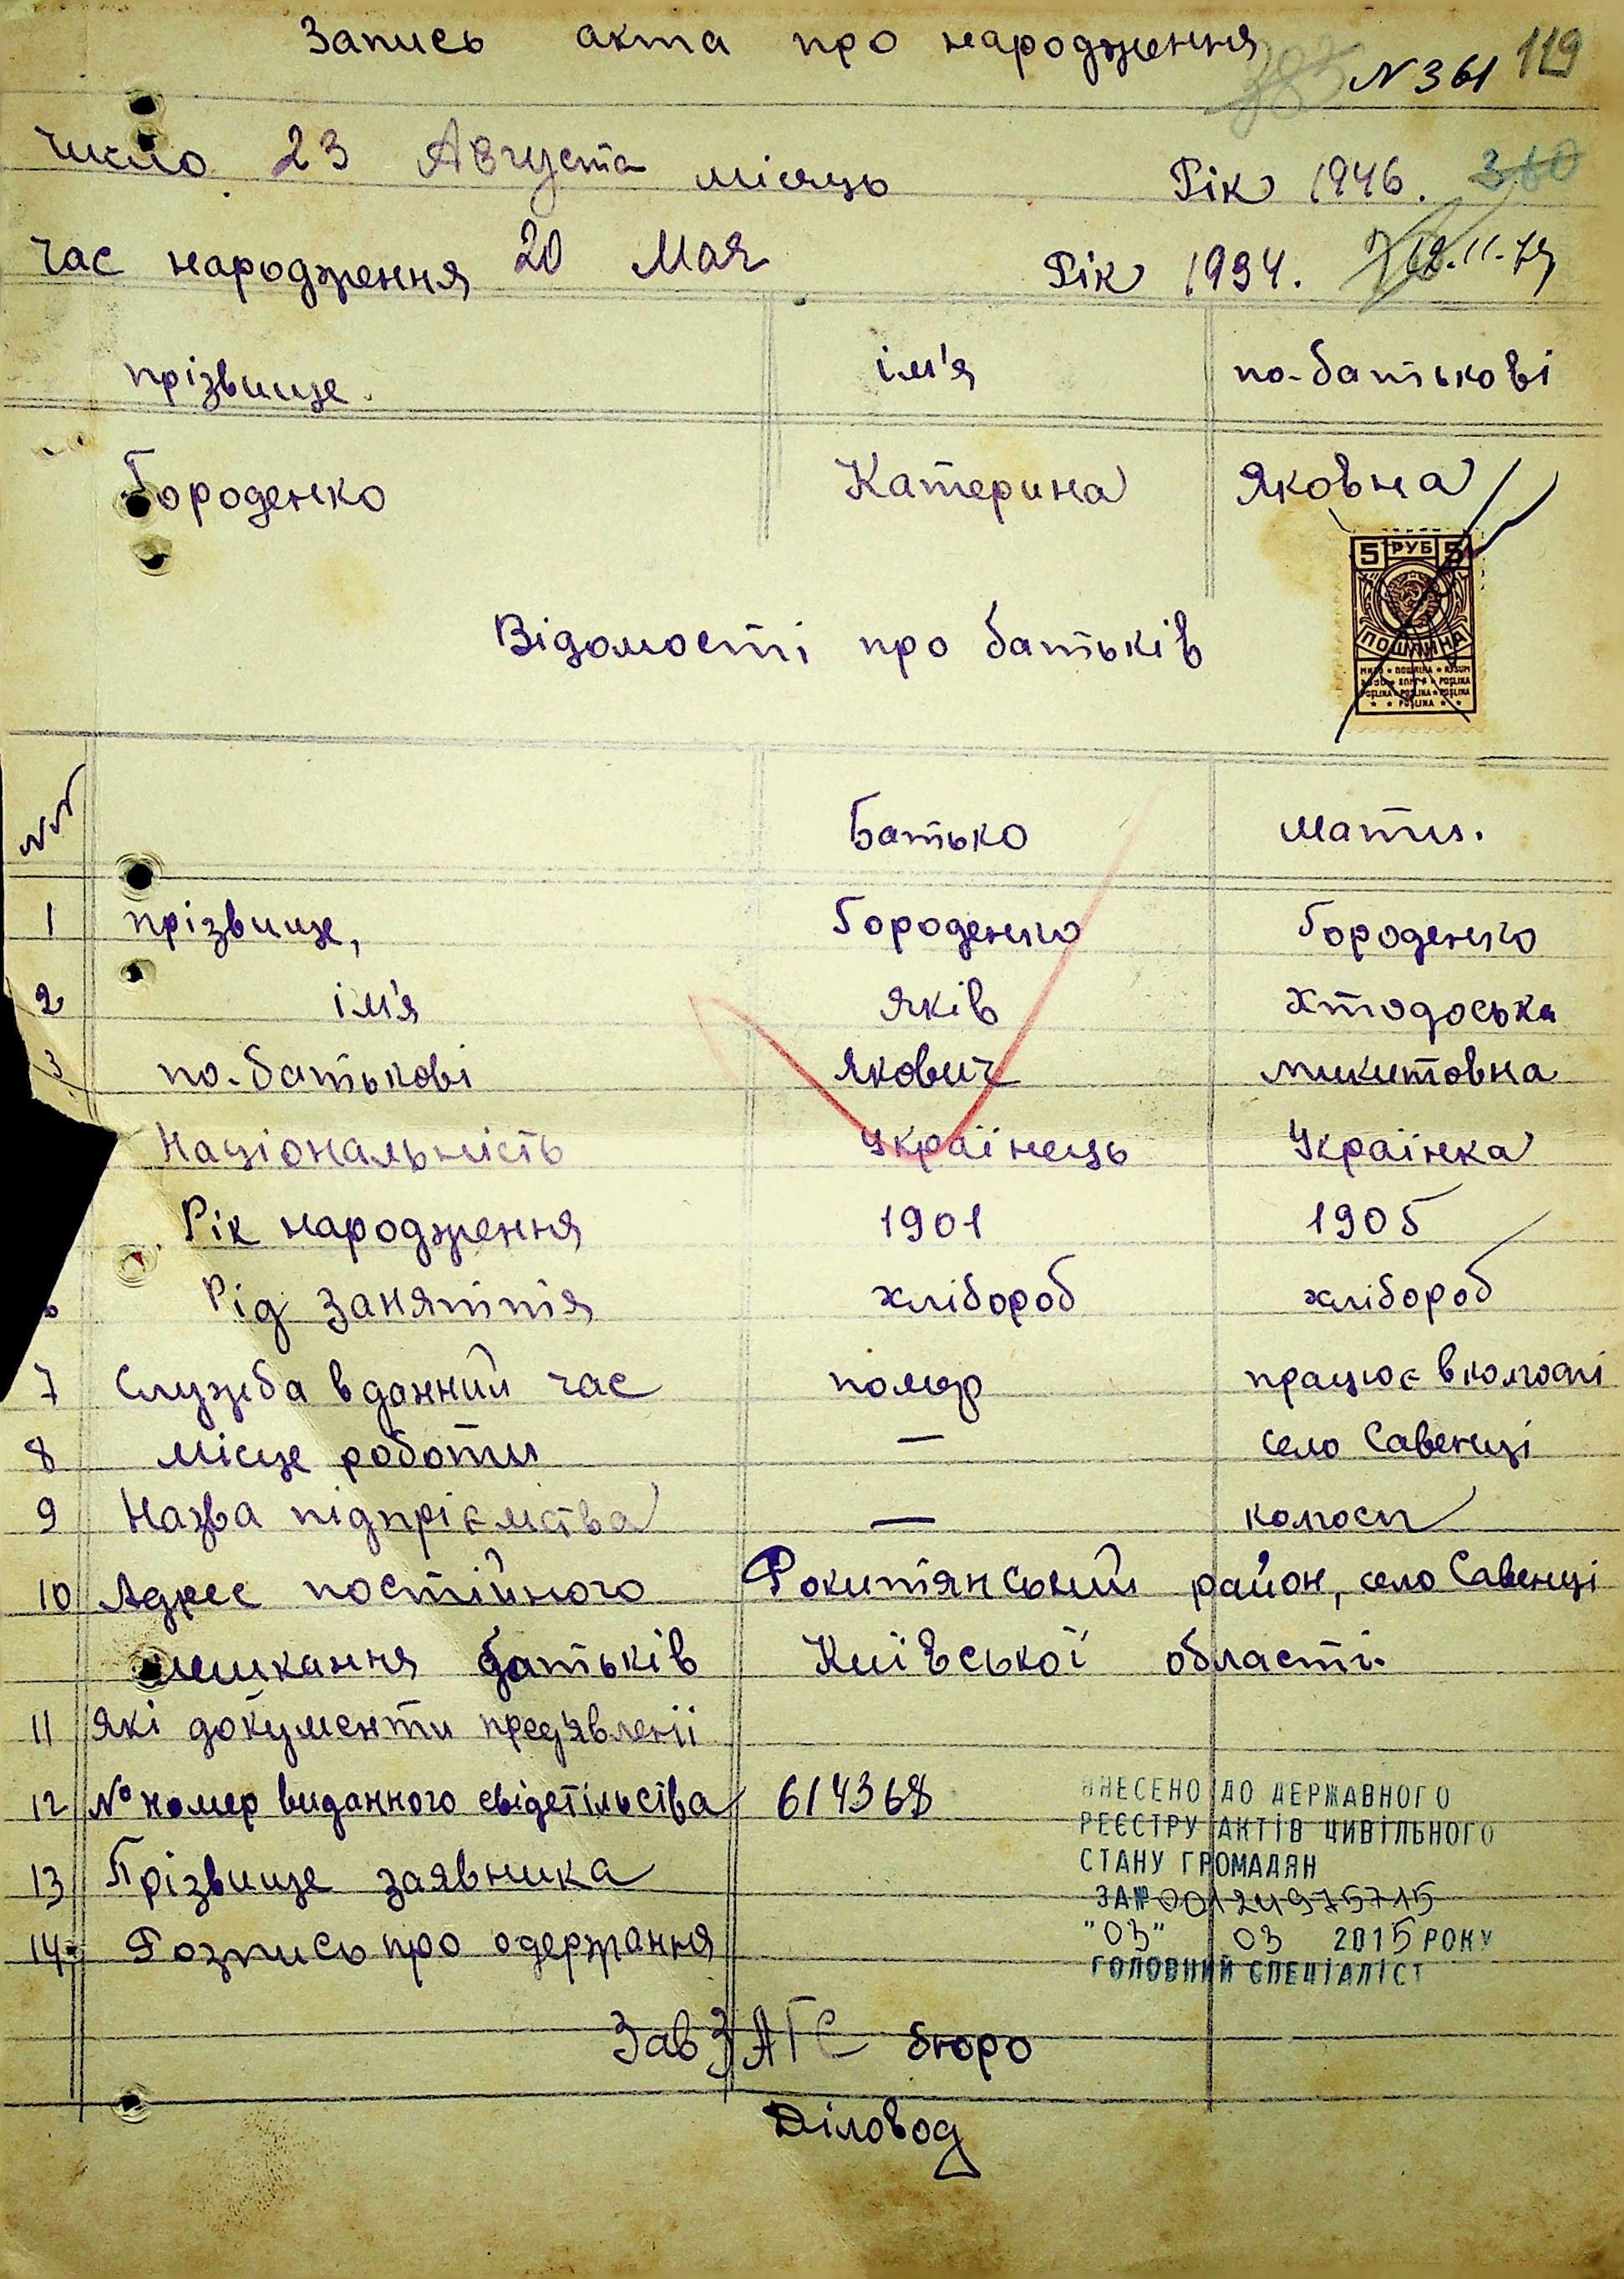 Запись акта про народження
383 N 361 119
число 23 Августа місяць Рік 1946. 360
час народження 20 Мая Рік 1934. 12.11.79
прізвище. ім'я по-батькові
Городенко Катерина Яковна
5 РУБ 5
ПОШЛИНА
Відомості про батьків
NN Батько мати.
1 прізвище, Городенко Городенко
2 ім'я Яків Хтодоська
3 по-батькові Якович микитовна
Національність Українець Українка
Рік народження 1901 1905
6 Рід заняття хлібороб хлібороб
7 Служба в данний час помер працює в колгоспі
8 Місце роботи — село Савенці
9 Назва підпріємства — колгосп
10 Адрес постійного Рокитянський район, село Савенці
мешкання батьків Київської області.
11 Які документи предявлені
12 № номер виданного свідетільства 614368
13 Прізвище заявника
14 Розпись про одержання
ВНЕСЕНО ДО ДЕРЖАВНОГО
РЕЄСТРУ АКТІВ ЦИВІЛЬНОГО
СТАНУ ГРОМАДЯН
ЗА № 00124975715
"03" 03 2015 РОКУ
ГОЛОВНИЙ СПЕЦІАЛІСТ
Зав ЗАГС бюро
Діловод